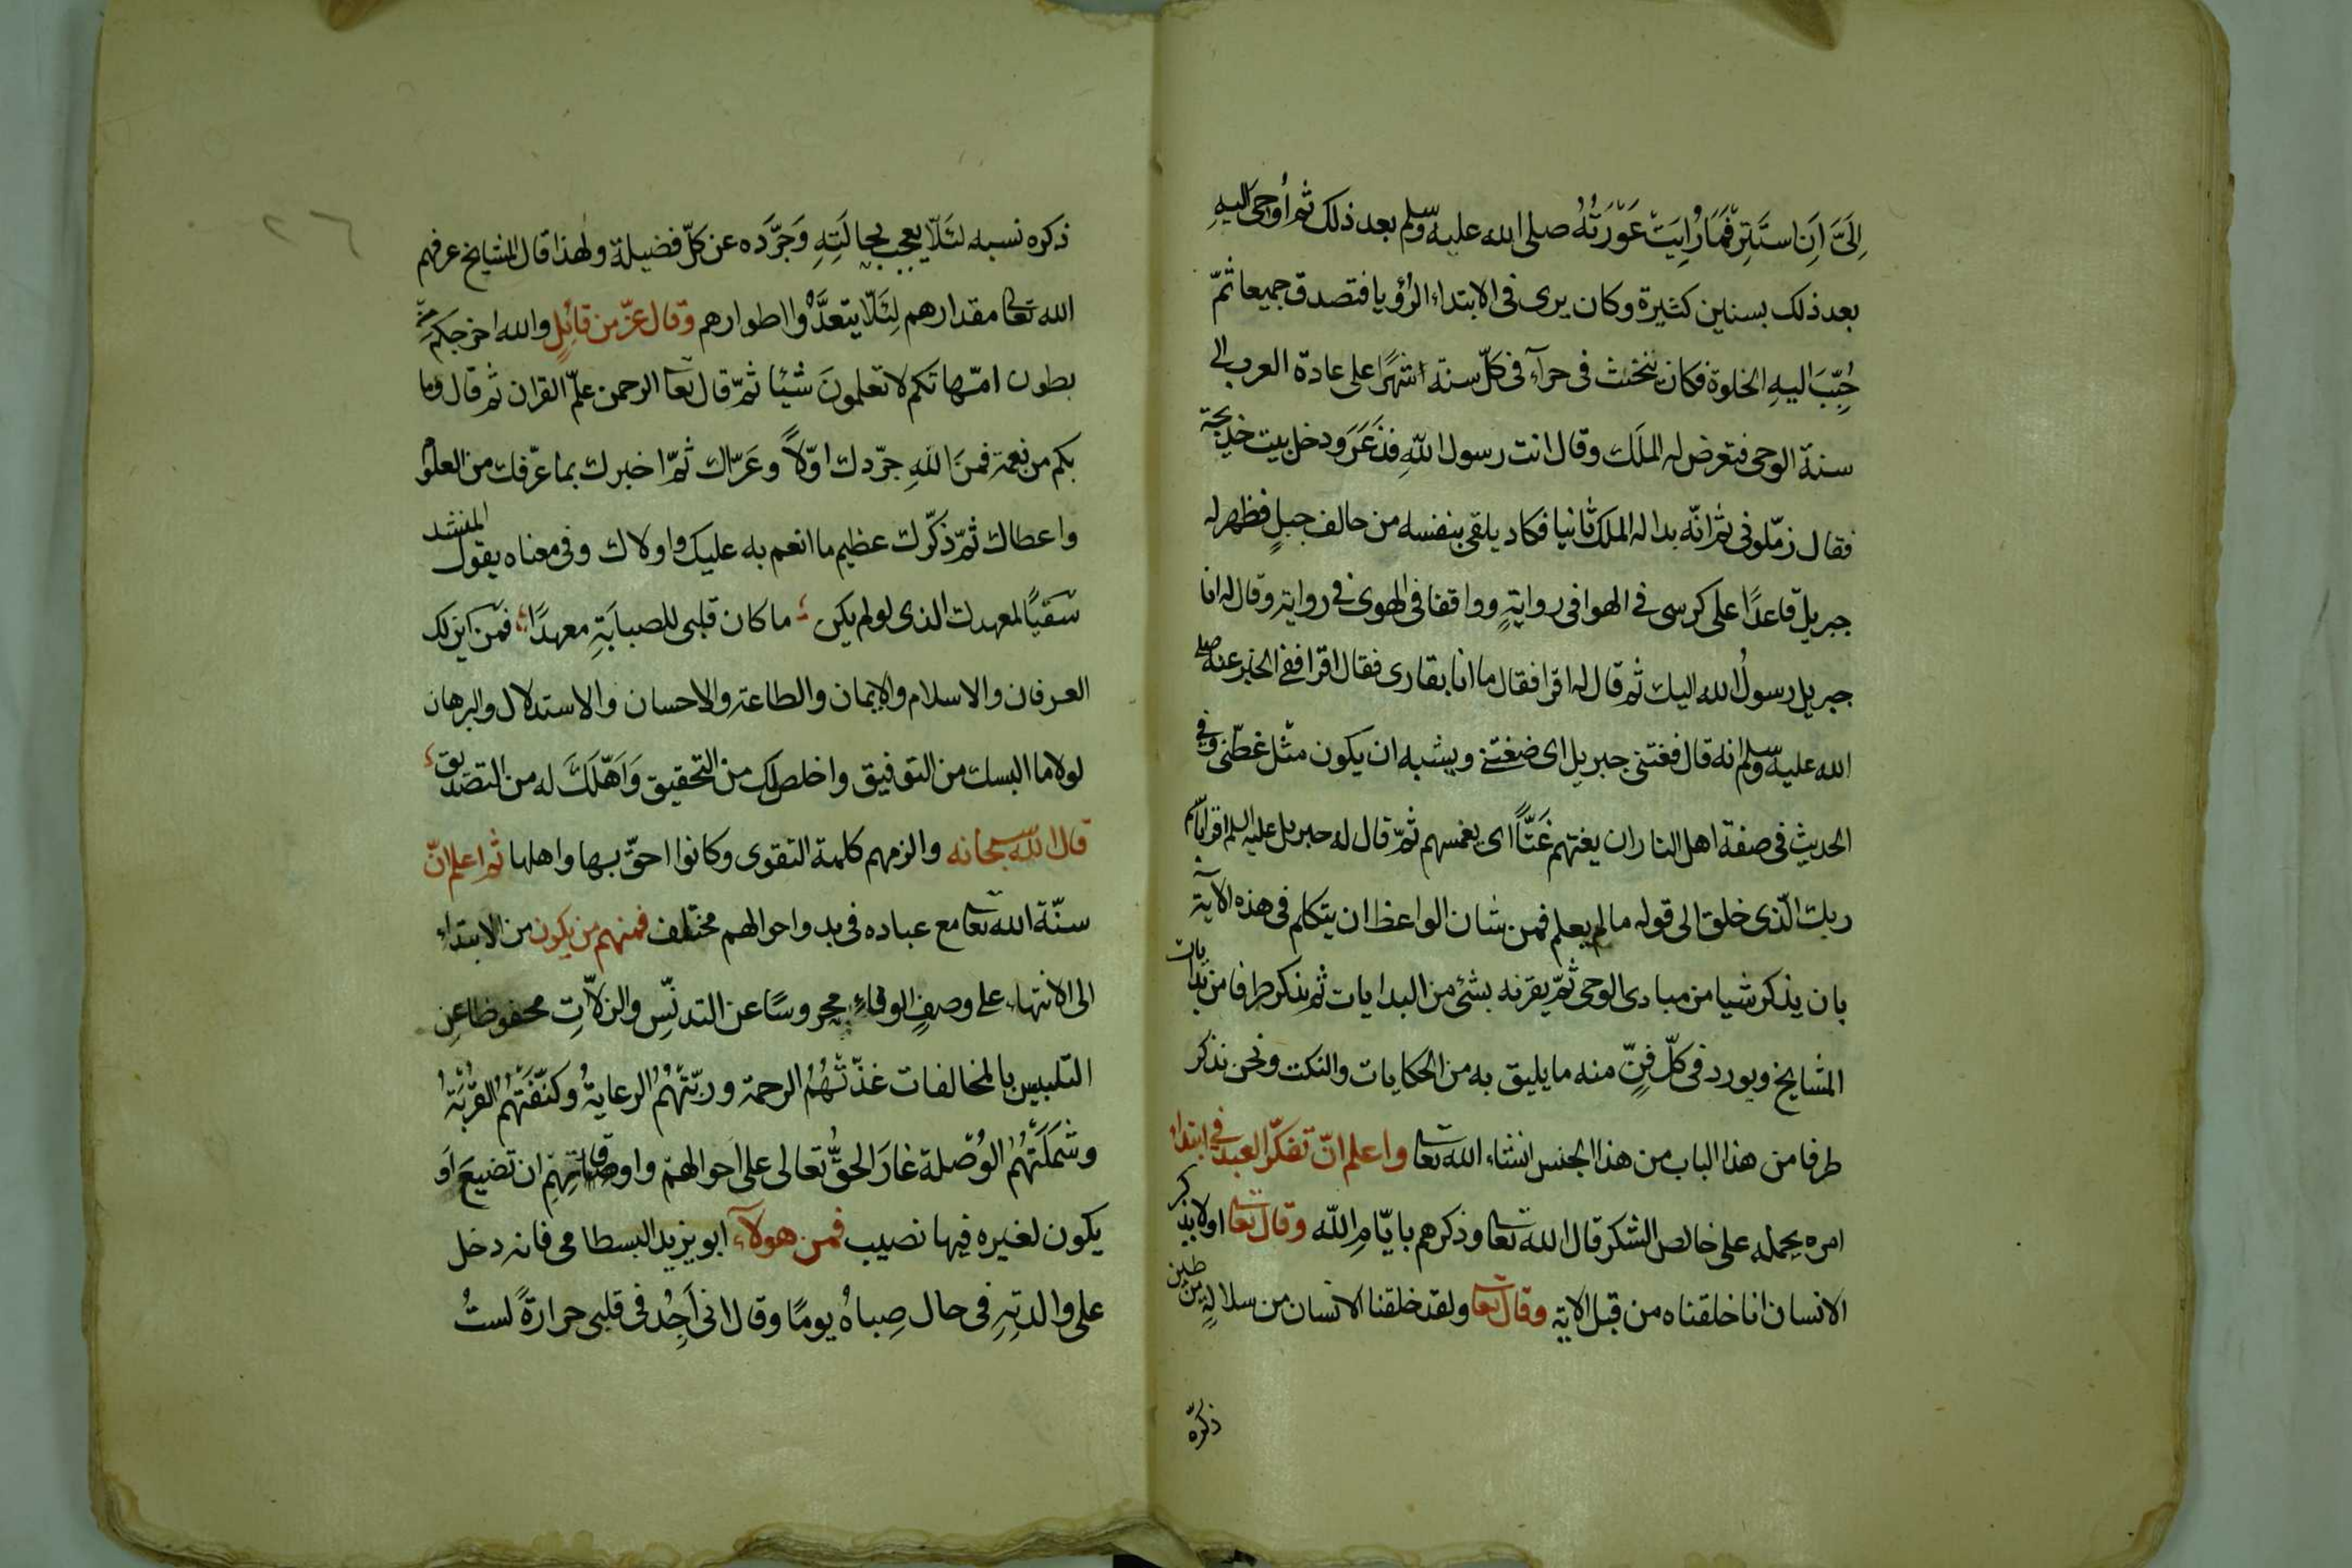 اِلَىَّ اَنِ اسْتَتِرْ فَمَا رُاِيَتْ عَوْرَتُهُ صلى الله عليه وسلم بعد ذلك ثم اُوحىَ اليهِ
بعد ذلك بسنين كثيرة وكان يرى فى الابتداء الرُؤيا فتصدق جميعا ثمّ
حُبِّبَ اليهِ الخلوة فكان يتحنث فى حراء فى كلّ سنة شهرًا على عادة العرب الى
سنة الوحى فتعرض له الملَك وقال انت رسول اللّهِ فذعَرَ ودخل بيت خديجة
فقال زمّلونى ثم انّه بدا له الملك ثانيا فكاد يلقى بنفسه من حالف جبلٍ فظهر له
جبريل قاعدًا على كرسى فى الهوا فى روايةٍ وواقفا فى الهوى فى رواية وقال له انا
جبريل رسولُ الله اليك ثم قال له اقرا فقال ما انا بقارى فقال اقرا ففى الخبر عنه صلى
الله عليه وسلم انه قال فغتنى جبريل اى ضغتنى ويشبه ان يكون مثل غطّنى وفى
الحديث فى صفة اهل النار ان يغتهم غَتًّا اى يغمسهم ثمّ قال له جبريل عليه السلم اقرا باسم
ربك الّذى خلق الى قوله ما لم يعلم فمن شان الواعظ ان يتكلم فى هذه الاية
بان يذكر شيا من مبادى الوحى ثمّ يقرنه بشئ من البدايات ثم يذكر طرفا من بدايات
المشايخ ويورد فى كلّ فنٍّ منه ما يليق به من الحكايات والنكت ونحن نذكر
طرفا من هذا الباب من هذا الجنس انشاء الله تعا واعلم انّ تفكّر العبد فى ابتداء
امره يحمله على خالص الشكر قال الله تعا وذكرهم بايّامِ اللّه وقال تعا اولا يذكر
الانسان انا خلقناه من قبل الاية وقال تعا ولقد خلقنا الانسان من سلالةٍ من طين
ذكره
٢٦
ذكره نسبه لئَلّا يعجب بحالَتِهِ وَجَرَّده عن كلّ فضيلة ولهذا قال المشايخ عرفهم
الله تعا مقدارهم لِئَلّا يتعدَّوْا اطوارهم وقال عزّ من قائِلٍ والله اخرجكم من
بطون امّهاتكم لا تعلمونَ شيئا ثمّ قال تعا الرحمن علّم القران ثم قال وما
بكم من نعمة فمنَ اللهِ جرّدك اوّلاً وعَرّاك ثمّ اخبرك بما عرّفك من العلو
واعطاك ثمّ ذكّرك عظيم ما انعم به عليك واولاك وفى معناه يقول المنشد
سَقيًا لمعهدك الذى لو لم يكن ما كان قلبى للصبابَةِ معهدًا فمن اين لك
العرفان والاسلام والايمان والطاعة والاحسان والاستدلال والبرهان
لولا ما البسك من التوفيق واخلص لك من التحقيق وَاَهّلَكَ له من التصديق
قال الله سبحانه والزمهم كلمة التقوى وكانوا احقّ بها واهلها ثم اعلم انّ
سنّة الله تعا مع عباده فى بدو احوالهم مختلف فمنهم من يكون من الابتداء
الى الانتهاء على وصفِ الوفاءِ محروسًا عن التدنّسِ والزلّاتِ محفوظا عن
التلبيس بالمخالفات غذّتْهُمُ الرحمة وربّتْهُمُ الرعايةُ وكنّفَتْهُمُ القُرْبَةُ
وشَمَلَتْهُمُ الوُصْلة غارَ الحقُّ تعالى على اَحوالهم واوقاتِهِم ان تَضيعَ اَو
يكون لغيره فيها نصيب فمن هولاء ابو يزيد البسطامى فانه دخل
على والدتِهِ فى حال صِباهُ يومًا وقال انى اَجِدُ فى قلبى حرارةً لستُ